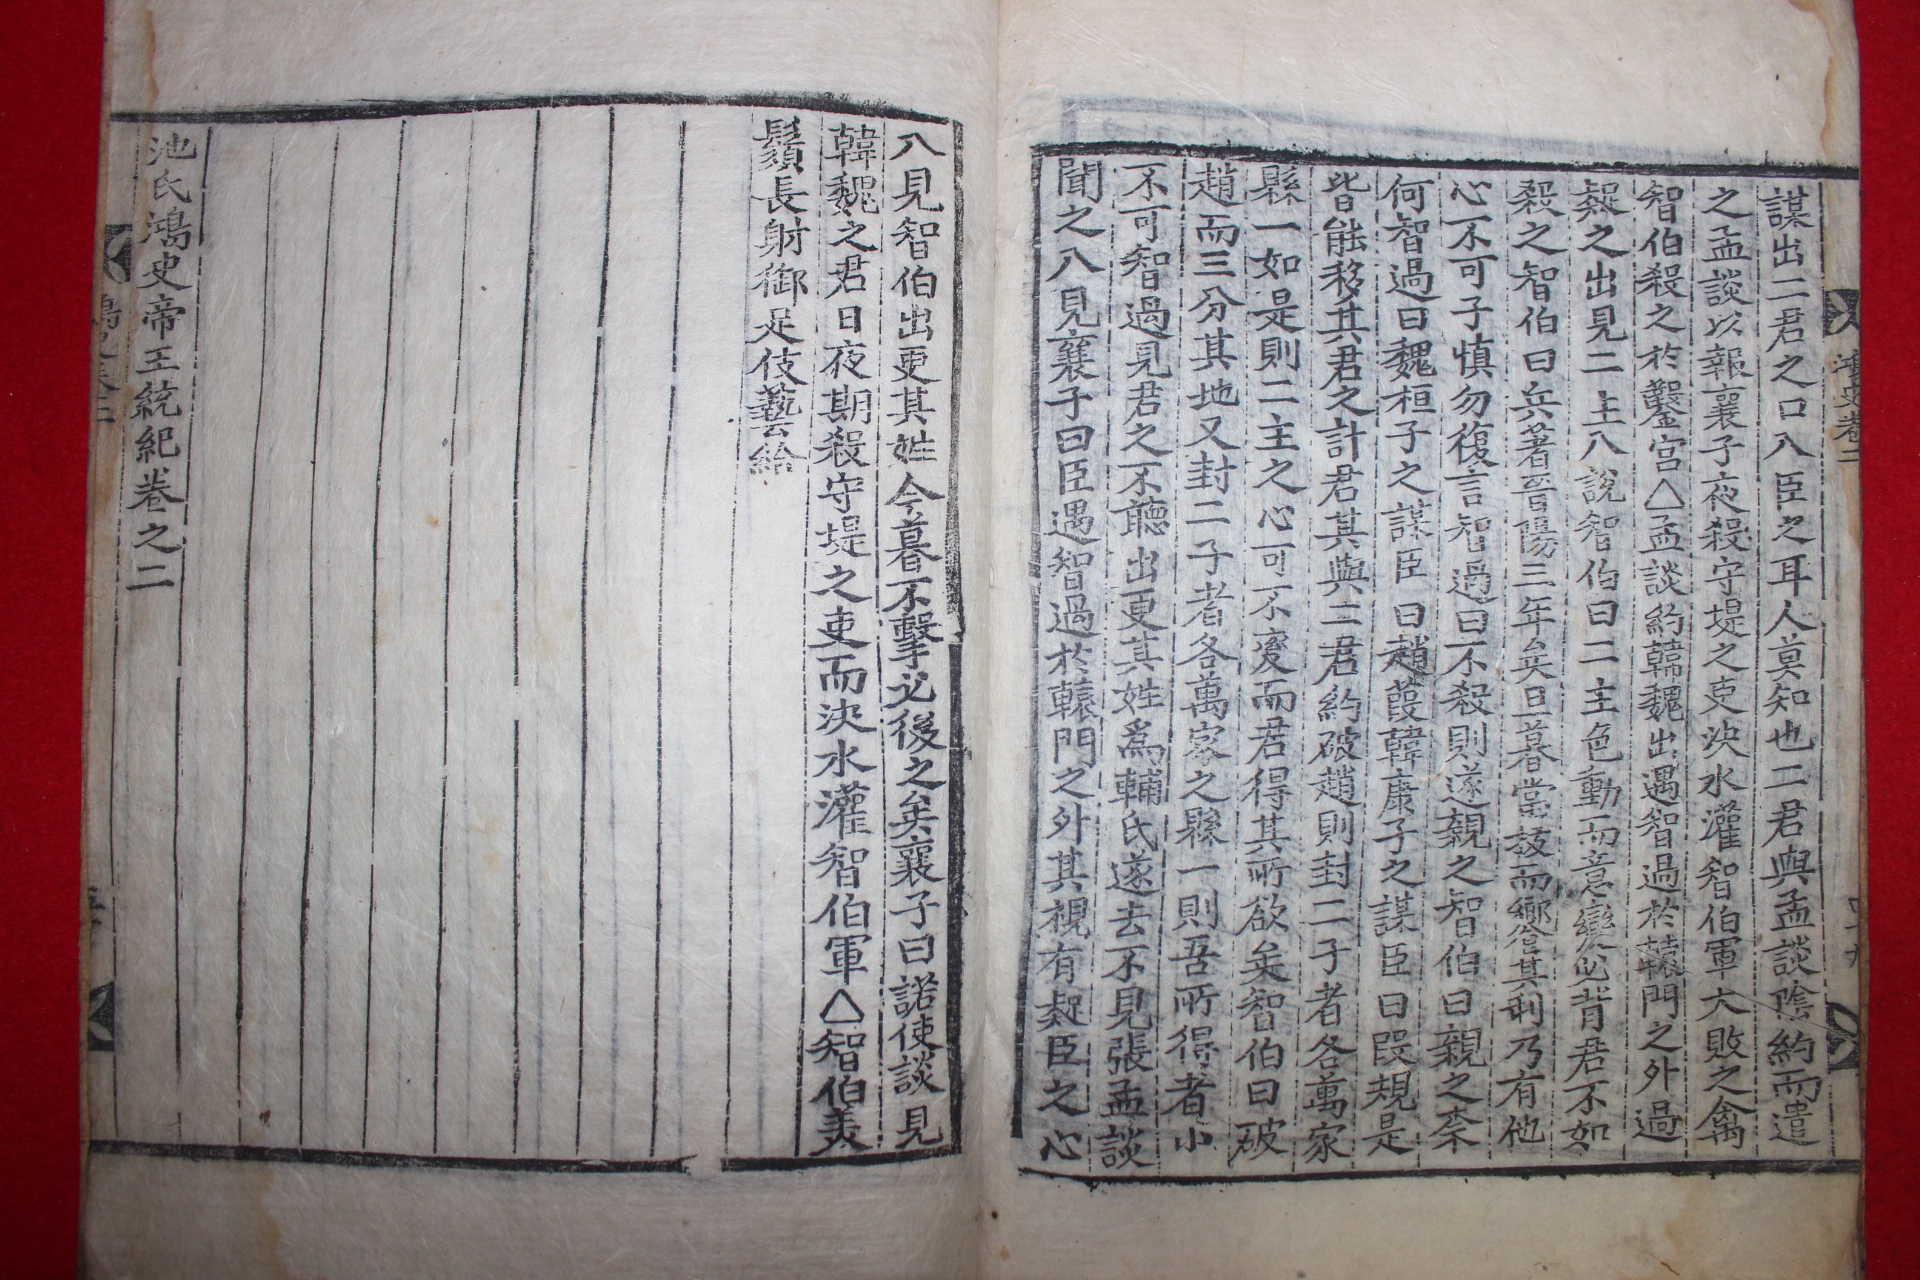 謀出二君之口入臣之耳人莫知也二君與孟談陰約而遣
之孟談以報襄子夜殺守堤之吏決水灌智伯軍大敗之禽
智伯殺之於鑿宮△孟談約韓魏出遇智過於轅門之外過
疑之出見二主入說智伯曰二主色動而意變必背君不如
殺之智伯曰兵著晉陽三年矣旦暮當拔而嚮其利乃有他
心不可子慎勿復言智過曰不殺則遂親之智伯曰親之柰
何智過曰魏桓子之謀臣曰趙葭韓康子之謀臣曰段規是
皆能移其君之計君其與二君約破趙則封二子者各萬家
縣一如是則二主之心可不變而君得其所欲矣智伯曰破
趙而三分其地又封二子者各萬家之縣一則吾所得者小
不可智過見君之不聽出更其姓爲輔氏遂去不見張孟談
聞之入見襄子曰臣遇智過於轅門之外其視有疑臣之心
入見智伯出更其姓今暮不擊必後之矣襄子曰諾使談見
韓魏之君日夜期殺守堤之吏而決水灌智伯軍△智伯美
鬚長射御足伎藝云給
池氏鴻史帝王統紀卷之二
鴻史卷二